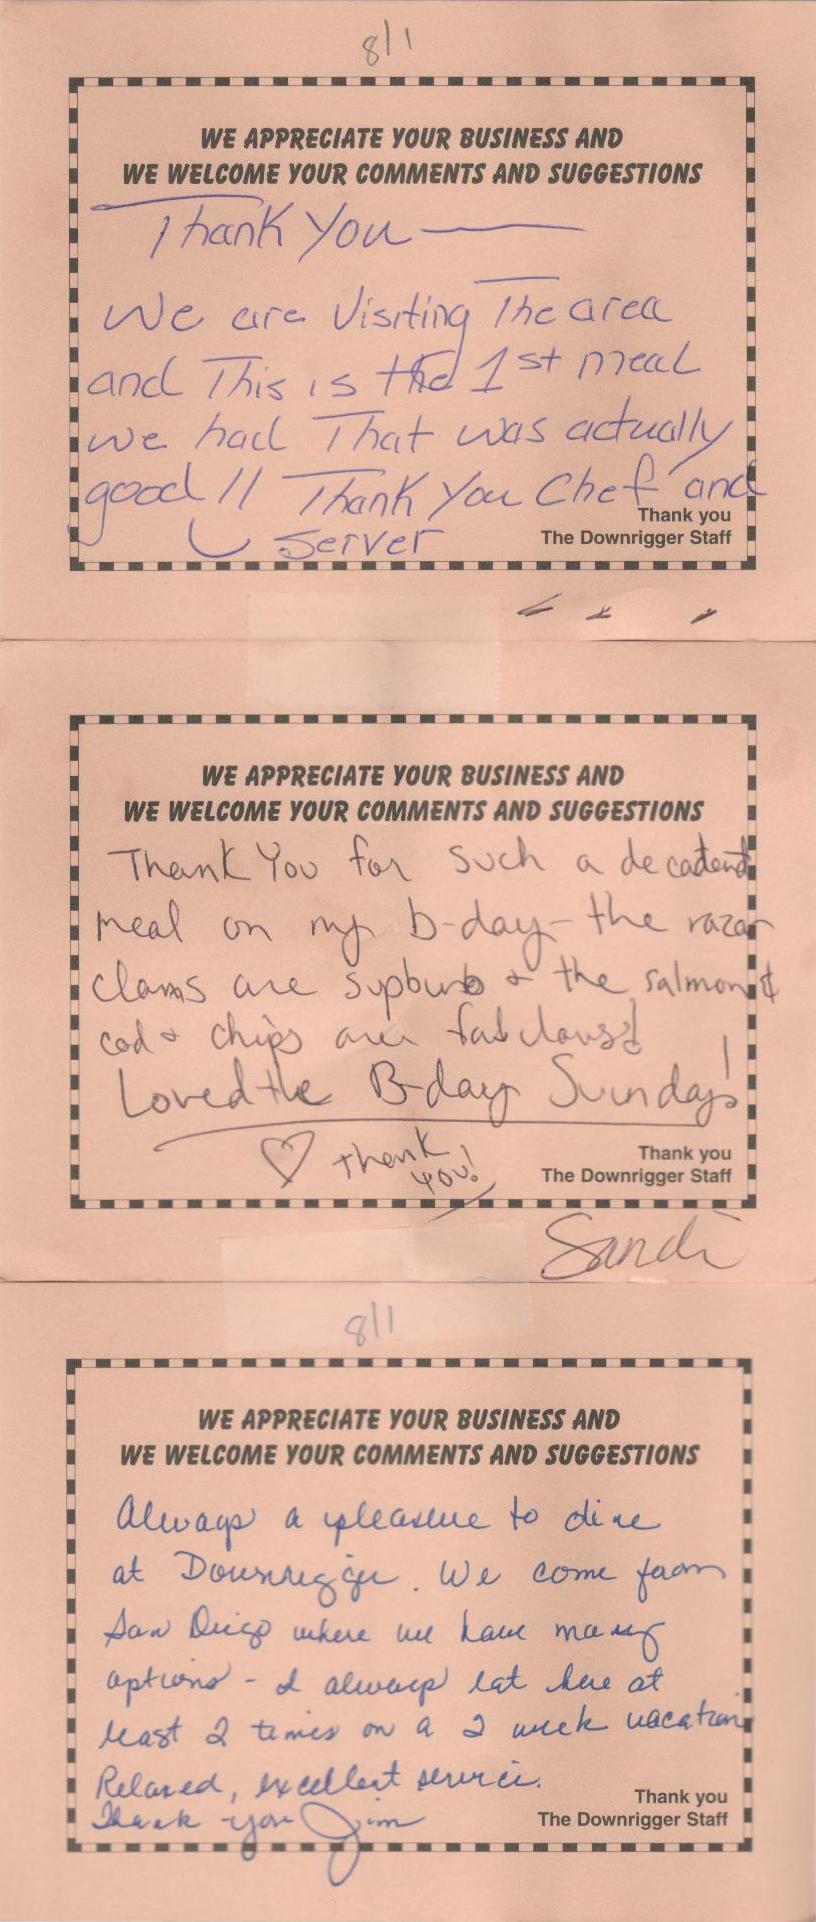 8/1
WE APPRECIATE YOUR BUSINESS AND
WE WELCOME YOUR COMMENTS AND SUGGESTIONS
Thank You —
We are Visiting The area
and This is the 1st meal
we had That was actually
good !! Thank You Chef and
Server
Thank you
The Downrigger Staff
WE APPRECIATE YOUR BUSINESS AND
WE WELCOME YOUR COMMENTS AND SUGGESTIONS
Thank You for such a decadent
meal on my b-day - the razor
clams are supburb & the salmon &
cod & chips are fabulous!
Loved the B-day Sunday!
♡ thank
you!
Thank you
The Downrigger Staff
Sandi
8/1
WE APPRECIATE YOUR BUSINESS AND
WE WELCOME YOUR COMMENTS AND SUGGESTIONS
Always a pleasure to dine
at Downrigger. We come from
San Diego where we have many
options - I always eat here at
least 2 times on a 2 week vacation
Relaxed, excellent service.
Thank you Jim
Thank you
The Downrigger Staff